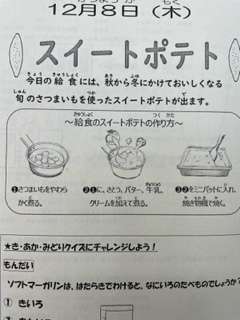 12月8日（木）
スイートポテト
今日の給食には、秋から冬にかけておいしくなる
旬のさつまいもを使ったスイートポテトが出ます。
～給食のスイートポテトの作り方～
❶さつまいもをやわら
かく煮る。
❷❶に、さとう、バター、牛乳、
クリームを加えて煮る。
❸❷をミニバットに入れ、
焼き物機で焼く。
★き・あか・みどりクイズにチャレンジしよう！
もんだい
ソフトマーガリンは、はたらきでわけると、なにいろのたべものでしょうか？
① きいろ